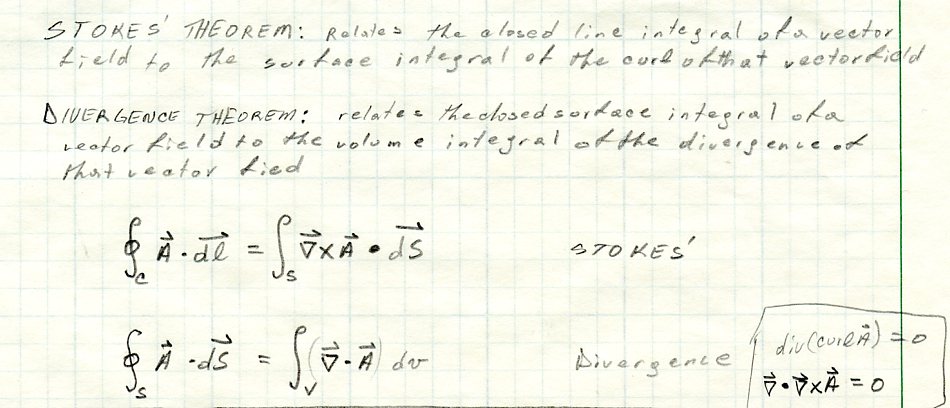 STOKES' THEOREM: Relates the closed line integral of a vector
field to the surface integral of the curl of that vector field
DIVERGENCE THEOREM: relates the closed surface integral of a
vector field to the volume integral of the divergence of
that vector fied
∮_C A⃗ · d⃗l = ∫_S ∇⃗ × A⃗ • d⃗S STOKES'
∮_S A⃗ · d⃗S = ∫_V (∇⃗ · A⃗) dv Divergence
div(curl A⃗) = 0
∇⃗ • ∇⃗ × A⃗ = 0